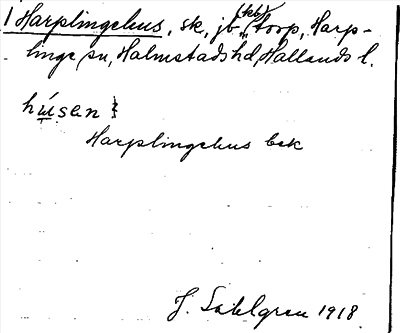 1 Harplingehus, sk, jb, (kb) torp, Harp-
linge sn, Halmstads hd, Hallands l.
húsen }
Harplingehus bek
J. Sahlgren 1918